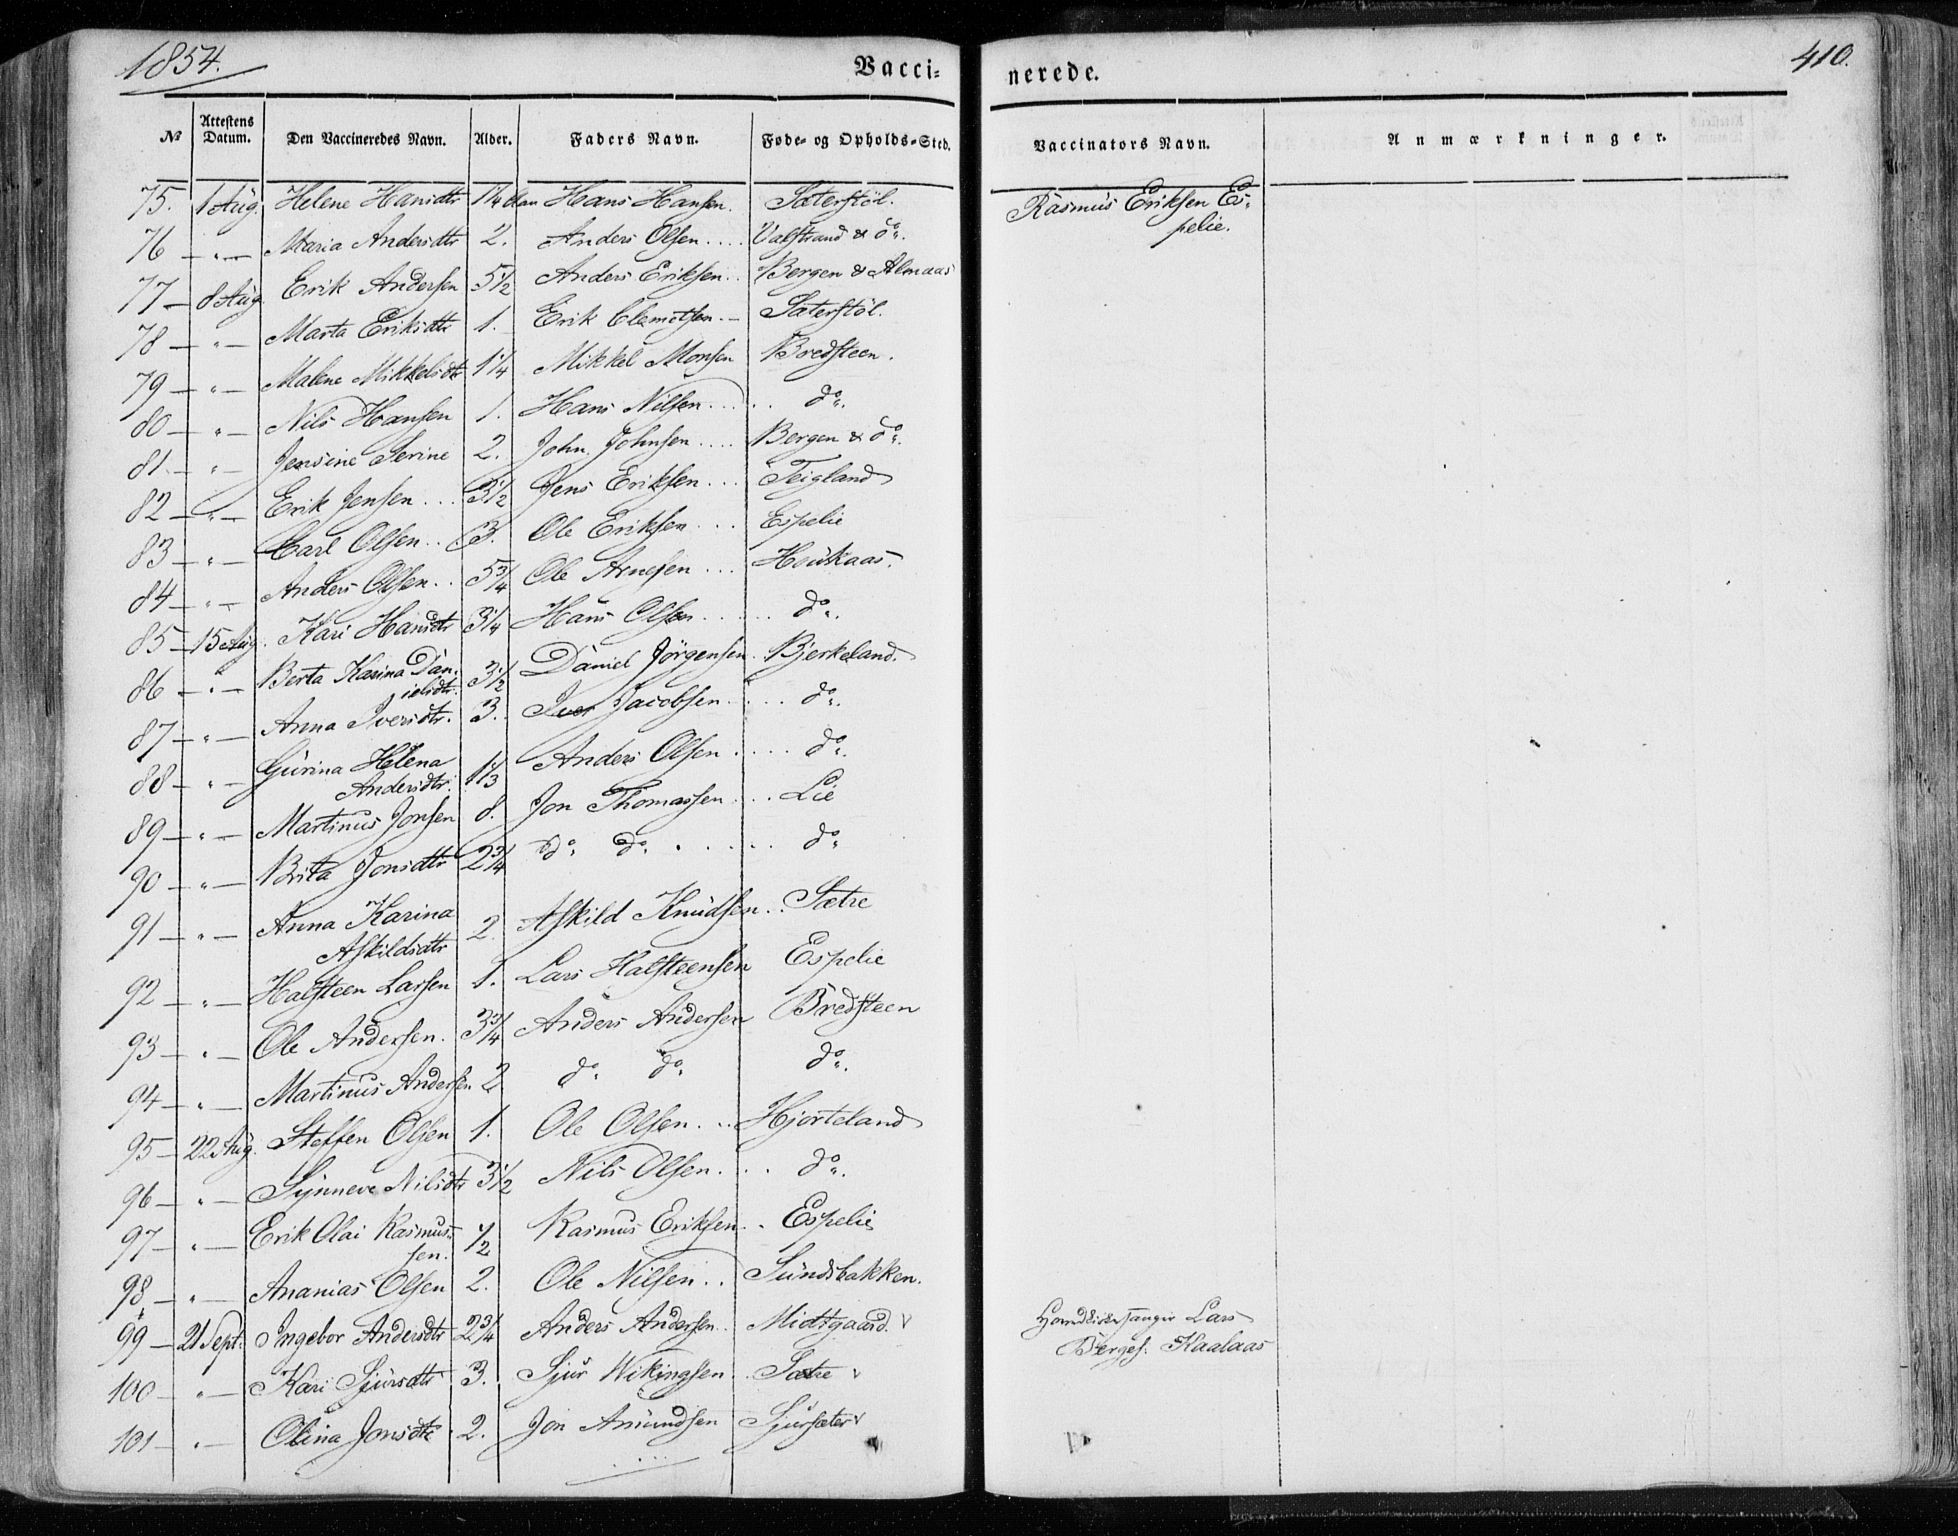 1854.
Vacci- nerede.
410.
No Attestens Datum. Den Vaccineredes Navn. Alder. Faders Navn. Føde- og Opholds-Sted. Vaccinators Navn. Anmærkninger.
75. 1 Aug. Helene Hansdtr 1 1/4 Hans Hansen. Sæterstöl. Rasmus Eriksen Es-
pelie.
76 " Maria Andersdtr 2. Anders Olsen .... Valstrand & do.
77 8 Aug Erik Andersen 5 1/2 Anders Eriksen .. Bergen & Almaas
78 " Marta Eriksdtr 1. Erik Clemetsen. Sæterstöl.
79 " Malene Mikkelsdtr 1 1/4 Mikkel Monsen Bredsteen.
80 " Nils Hansen 1. Hans Nilsen ..... do.
81. " Jensine Serine 2. John Johnsen .... Bergen & do.
82 " Erik Jensen ... 3 1/2 Jens Eriksen ... Teigland
83 " Carl Olsen .. 3. Ole Eriksen ... Espelie
84 " Anders Olsen .. 5 3/4 Ole Arnesen ... Houkaas.
85 15 Aug. Kari Hansdtr 3 1/4 Hans Olsen ...... do.
86 " Berta Karina Dan-
ielsdtr. 3 1/2 Daniel Jörgensen. Bjerkeland.
87 " Anna Iversdtr. 3. Iver Jacobsen ..... do.
88 " Gurina Helena
Andersdtr. 1 1/3 Anders Olsen ..... do.
89 " Martinus Jonsen 8. Jon Thomassen .... Lie
90 " Brita Jonsdtr 2 3/4 do. do. ..... do.
91 " Anna Karina
Askildsdtr 2. Askild Knudsen .. Sætre
92 " Halsteen Larsen 1. Lars Halsteensen Espelie
93 " Ole Andersen. 3 3/4 Anders Andersen Bredsteen
94 " Martinus Andersen 2 do. do. do.
95 22 Aug. Steffen Olsen 1. Ole Olsen ... Hjorteland
96 " Synneve Nilsdtr 3 1/2 Nils Olsen .... do.
97 " Erik Olai Rasmus-
sen. 1/2 Rasmus Eriksen .. Espelie
98 " Ananias Olsen 2. Ole Nilsen .. Sundsbakken.
99 21 Sept. Ingebor Andersdtr 2 3/4 Anders Andersen. Midtgaard. Lars
100 " Kari Sjursdtr 3. Sjur Wikingsen .. Sætre Børges. Kaalaas
101 " Olina Jonsdtr 2. Jon Amundsen Sjursæter